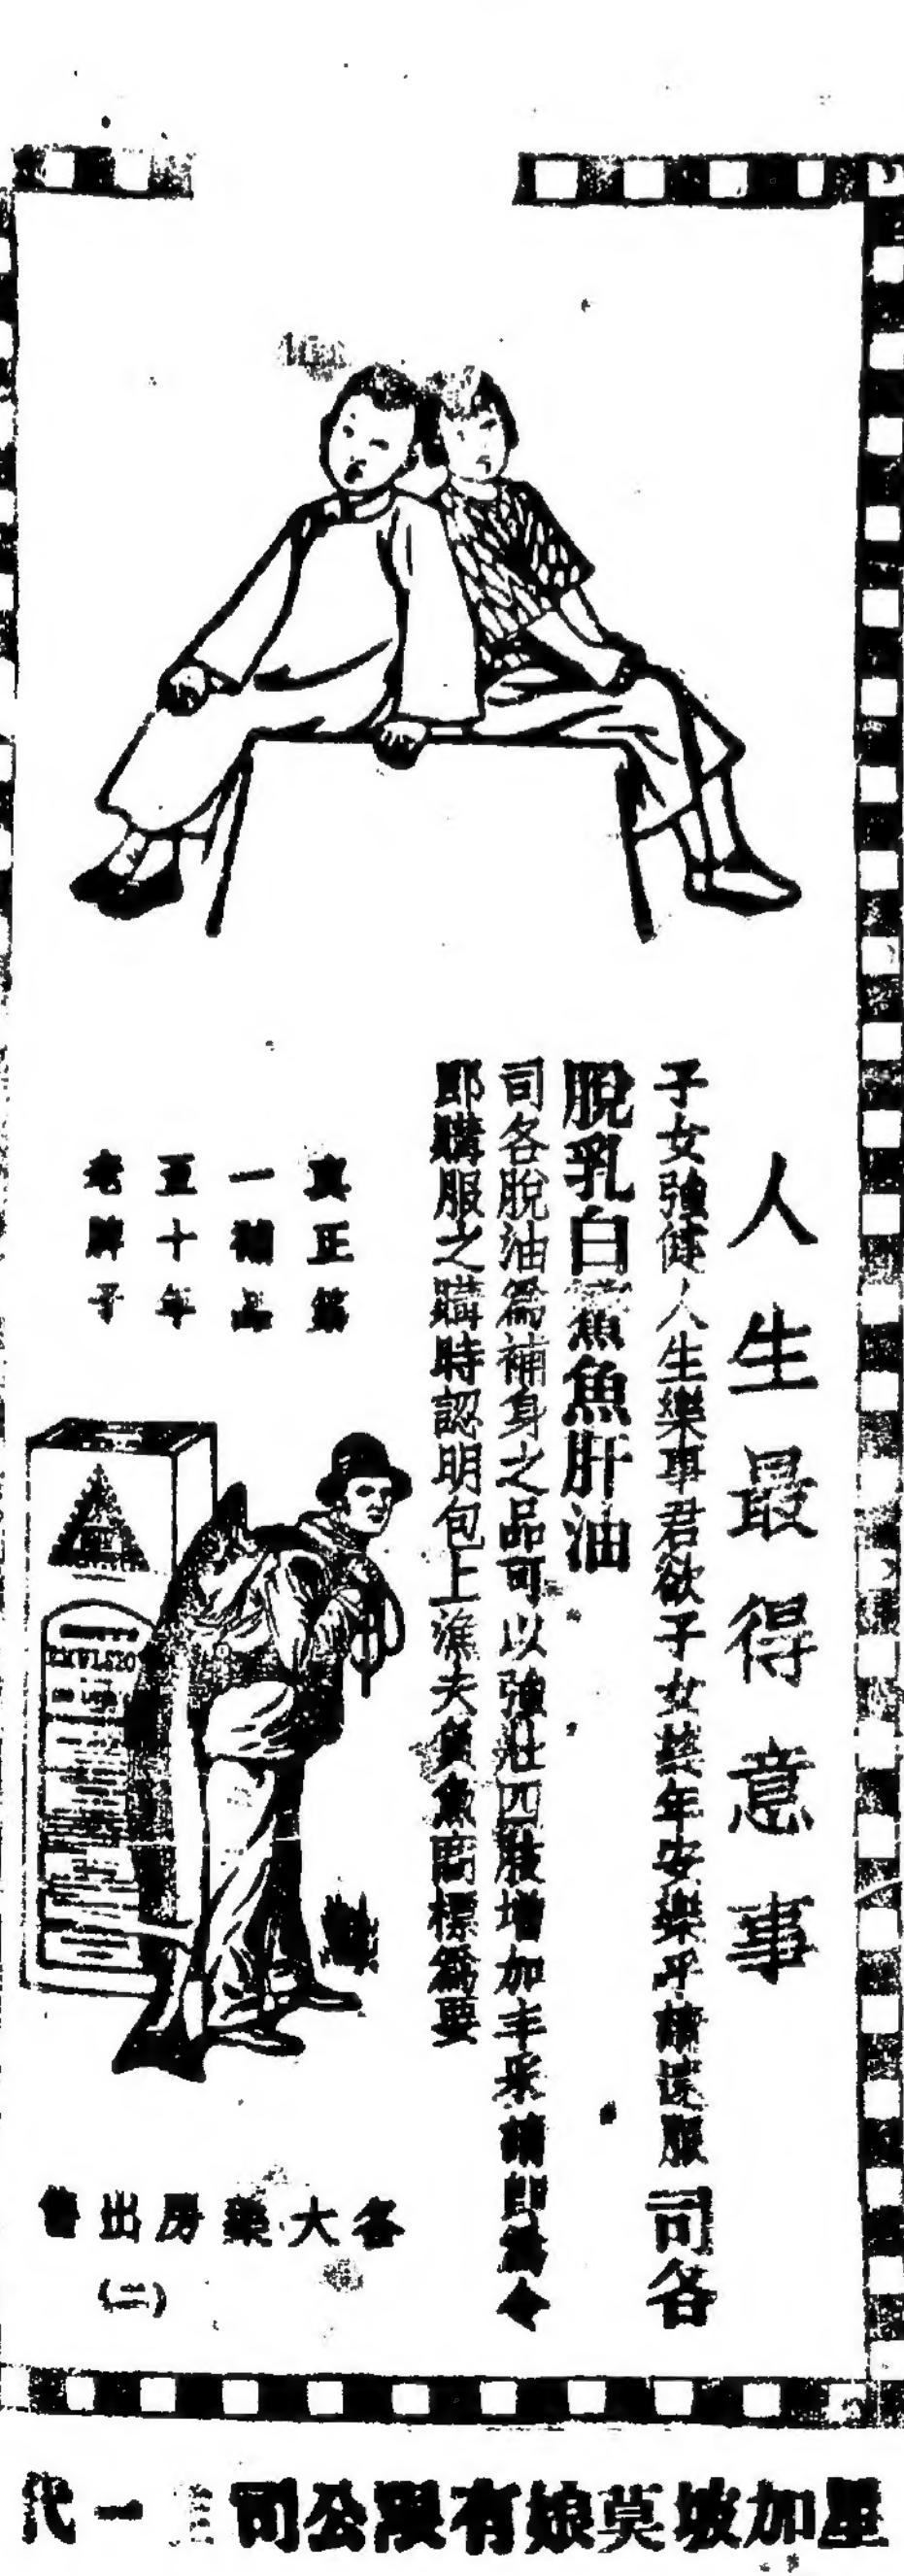 人生最得意事
子女強健人生樂事君欲子女 年安樂乎請速服司各
脫乳白鰵魚肝油
司各脫油爲補身之品可以強壯四肢增加丰采請卽爲令
郎購服之購時認明包上漁夫負魚商標爲要
真正第
一補品
五十年
老牌子
各大藥房出售
(二)
星加坡莫娘有限公司 一代